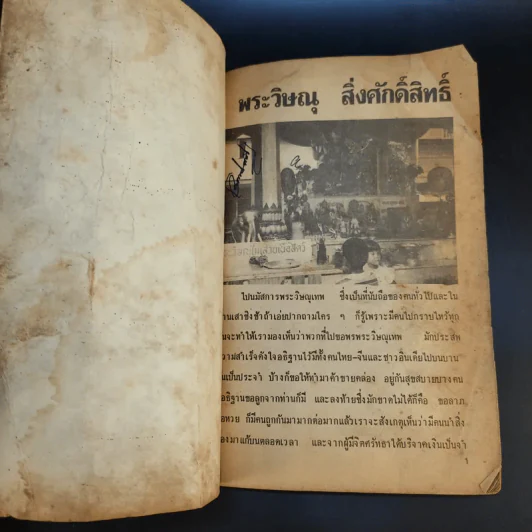 พระวิษณุ สิ่งศักดิ์สิทธิ์
ไปนมัสการพระวิษณุเทพ ซึ่งเป็นที่นับถือของคนทั่วไปและใน
านเสาชิงช้าถ้าเอ่ยปากถามใคร ๆ ก็รู้เพราะมีคนไปกราบไหว้ทุก
นจะทำให้เรามองเห็นว่าพวกที่ไปขอพรพระวิษณุเทพ มักประสพ
วามสำเร็จดังใจอธิฐานไว้มีทั้งคนไทย-จีนและชาวอินเดียไปบนบาน
นเป็นประจำ บ้างก็ขอให้ทำมาค้าขายคล่อง อยู่กันสุขสบายบางคน
อธิฐานขอลูกจากท่านก็มี และลงท้ายซึ่งมักขาดไม่ได้ก็คือ ขอลาภ,
อหวย ก็มีคนถูกกันมามากต่อมากแล้วเราจะสังเกตุเห็นว่ามีคนนำสิ่ง
องมาแก้บนตลอดเวลา และจากผู้มีจิตศรัทธาได้บริจาคเงินเป็นจำ
1